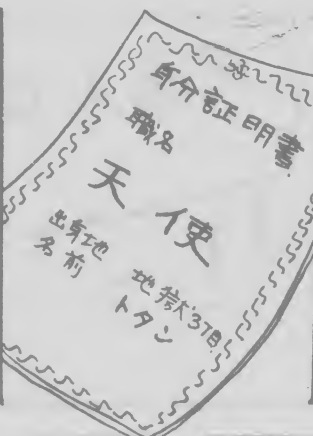 身分証明書
職名
天使
出身地 地獄3丁目
名前 トタン